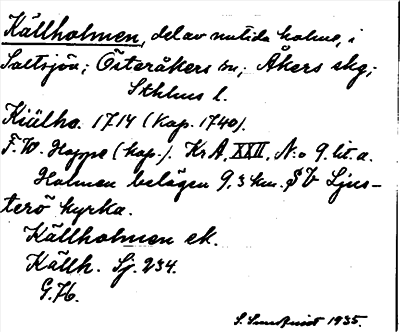 Källholmen, del av nutida holme, i
Saltsjön; Österåkers sn; Åkers skg;
Sthlms l.
Kiälho. 1714 (Kop. 1740).
F. W. Hoppe (kop.). KrA, XXII, N:o 9. lit. a.
Holmen belägen 9,3 km. SV Ljus-
terö kyrka.
Källholmen ek.
Källh. Sj. 234.
G. 76.
S. Sundquist 1935.